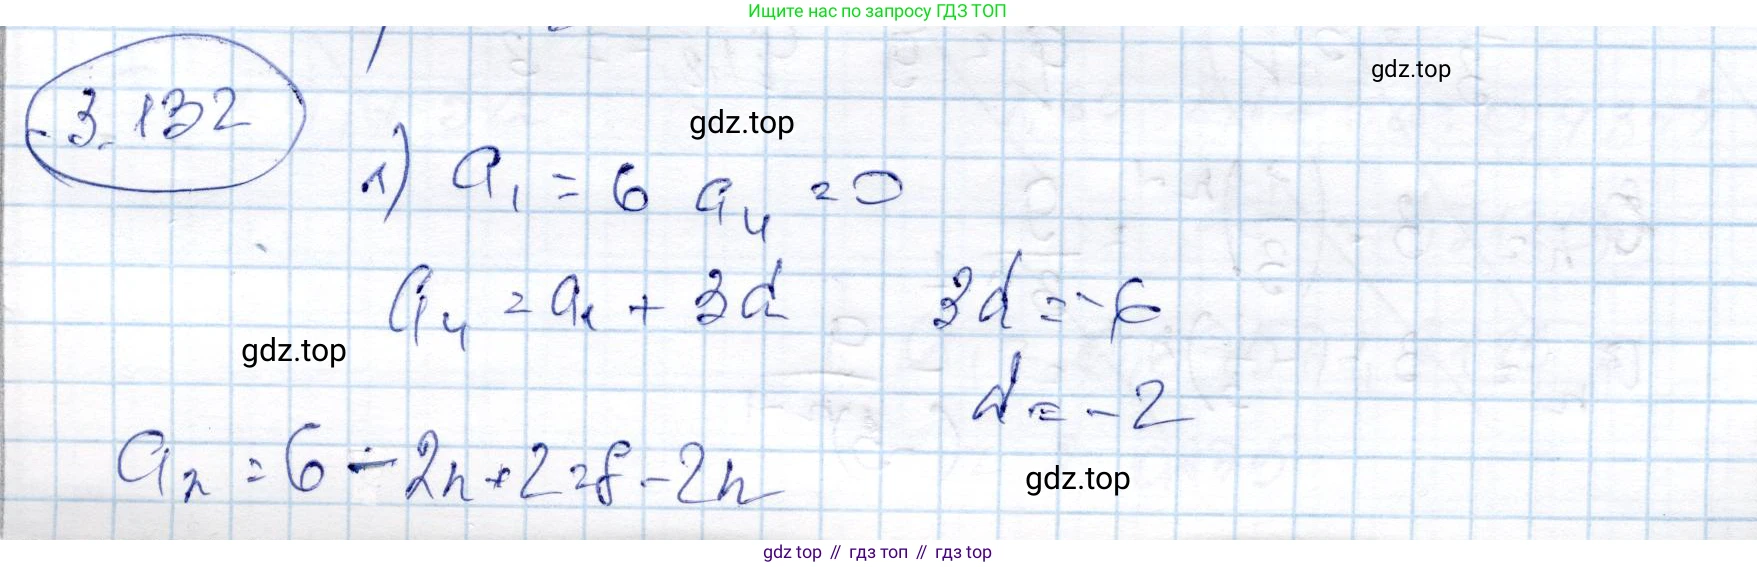 Ищите нас по запросу ГДЗ ТОП
3.132
gdz.top
gdz.top
1) a₁ = 6 a₄ = 0
a₄ = a₁ + 3d 3d = -6
gdz.top
d = -2
aₙ = 6 - 2n + 2 = 8 - 2n
gdz.top
gdz top // гдз топ // гдз top